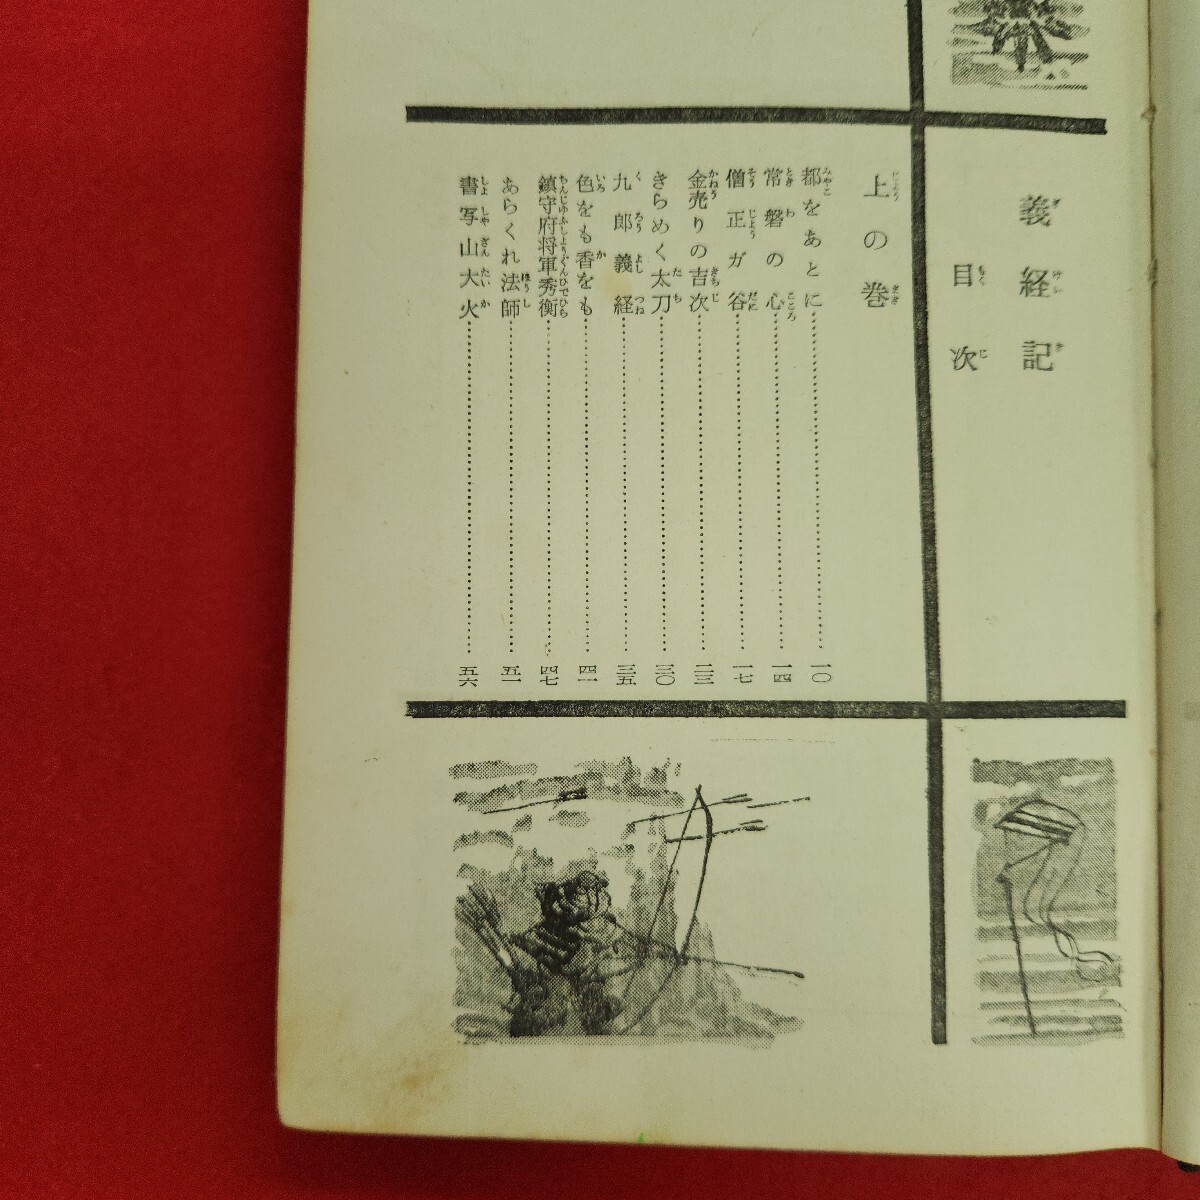 義経記
目次
上の巻
都をあとに……一〇
常磐の心……一四
僧正ガ谷……一七
金売りの吉次……二三
きらめく太刀……三〇
九郎義経……三五
色をも香をも……四一
鎮守府将軍秀衡……四七
あらくれ法師……五一
書写山大火……五六